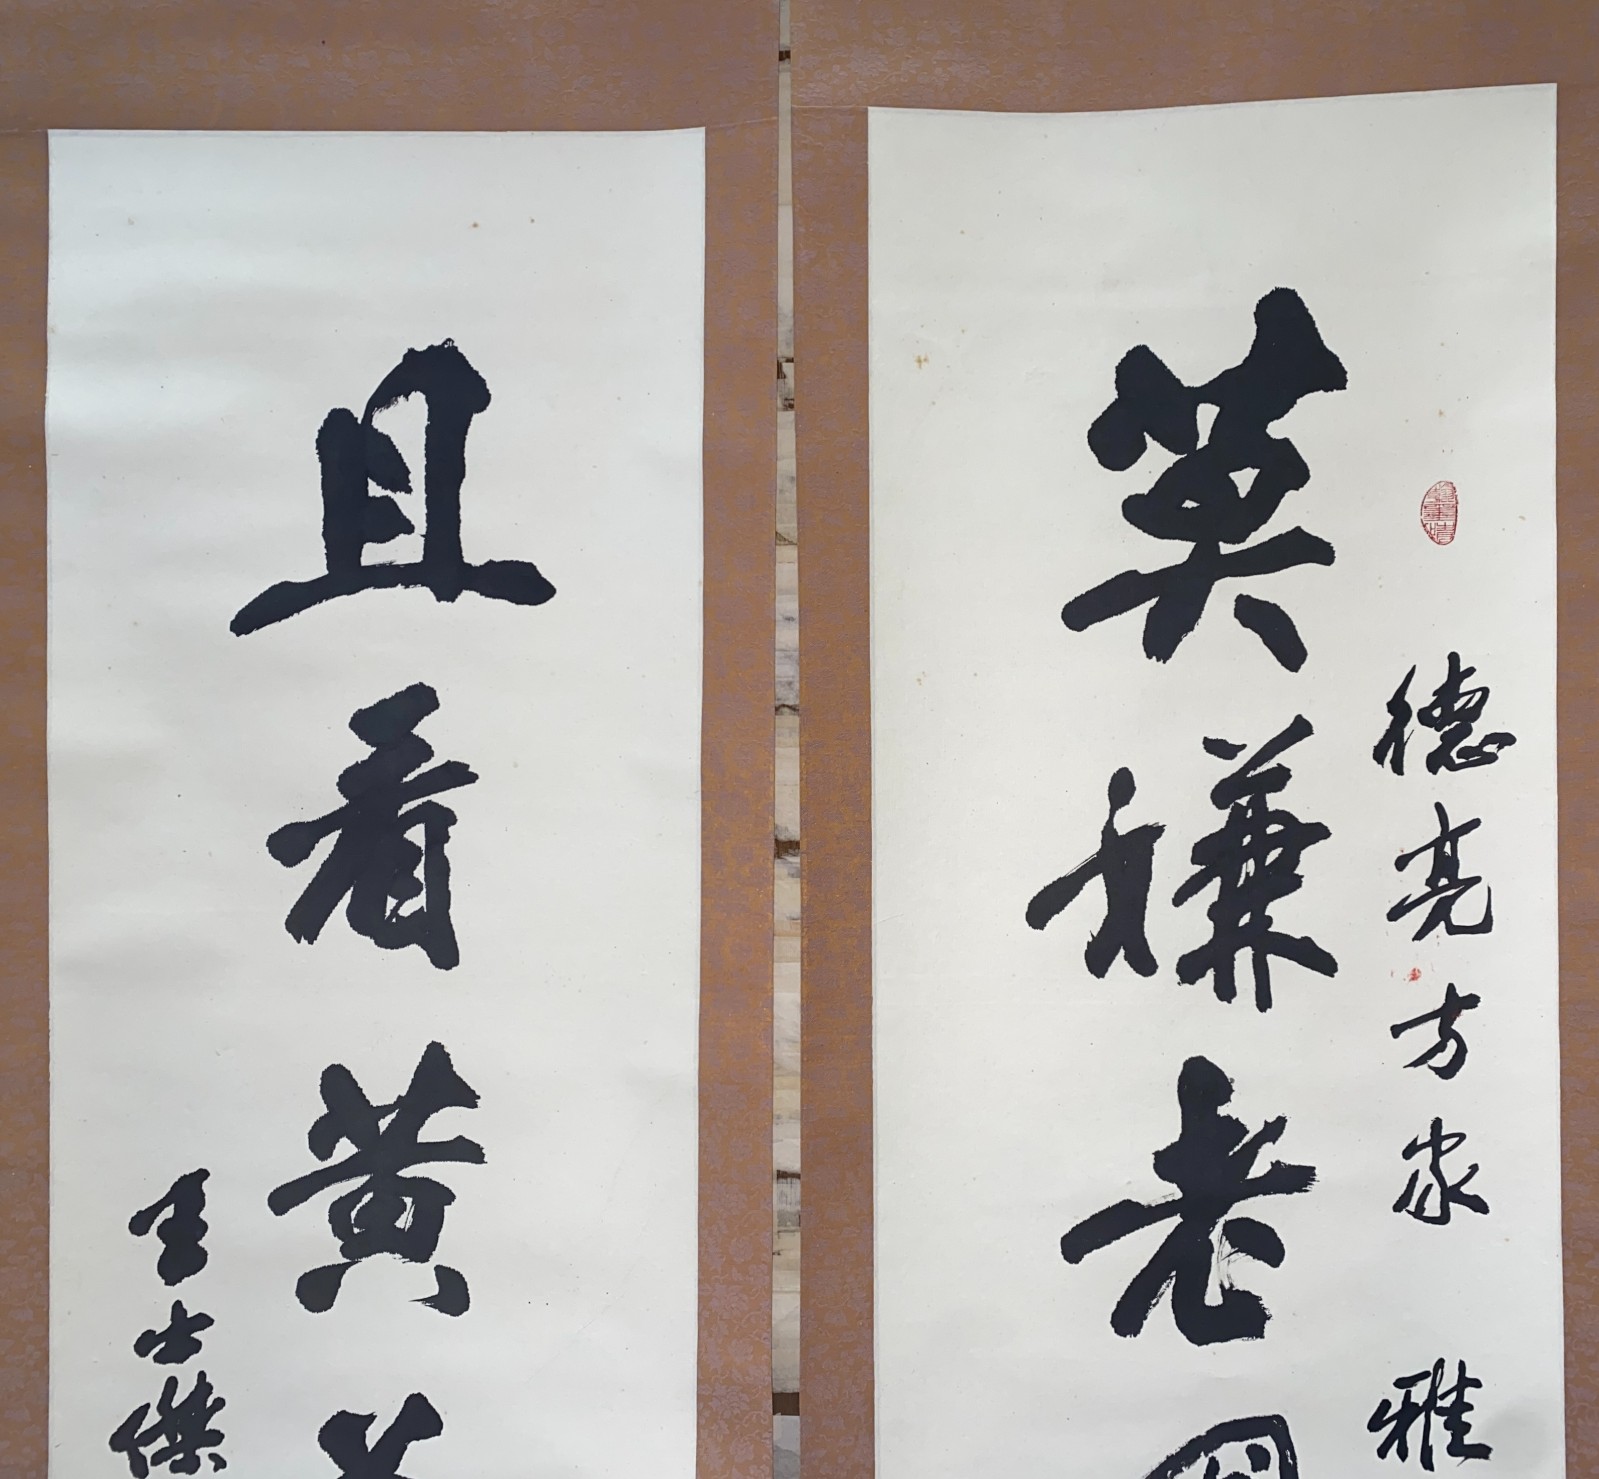 德亮方家 雅
莫嫌老
且看黄
士傑